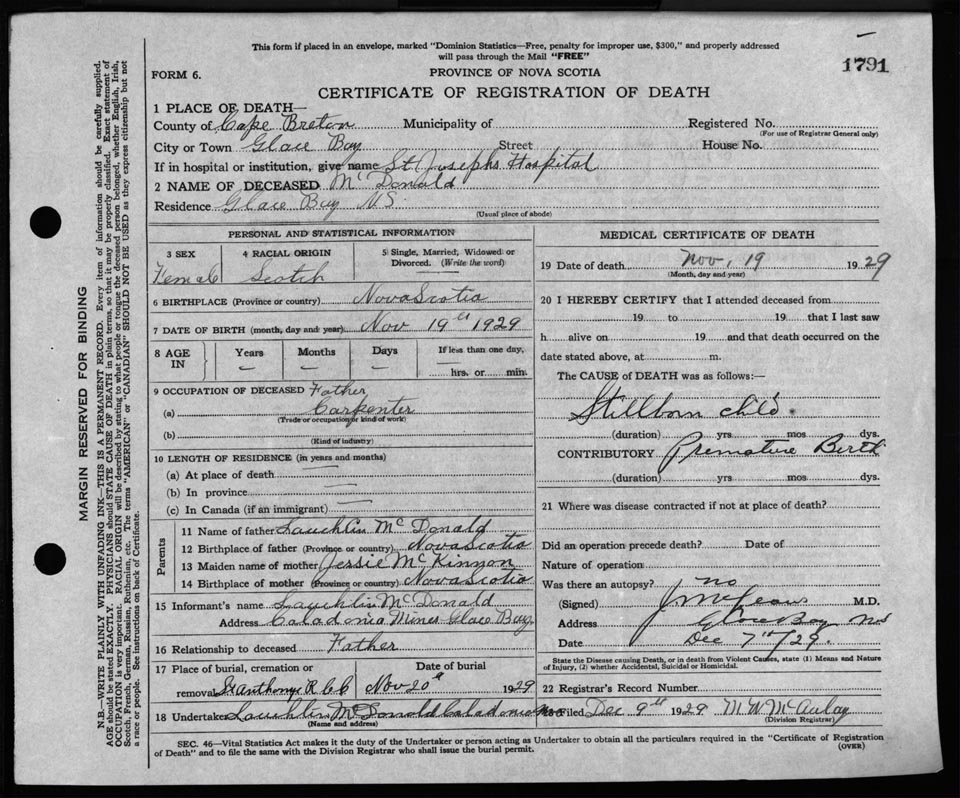 This form if placed in an envelope, marked "Dominion Statistics—Free, penalty for improper use, $300," and properly addressed
will pass through the Mail "FREE"
1791
FORM 6.
PROVINCE OF NOVA SCOTIA
CERTIFICATE OF REGISTRATION OF DEATH
1 PLACE OF DEATH—
County of Cape Breton Municipality of Registered No.
(For use of Registrar General only)
City or Town Glace Bay Street House No.
If in hospital or institution, give name St Josephs Hospital
2 NAME OF DECEASED McDonald
Residence Glace Bay N.S.
(Usual place of abode)
PERSONAL AND STATISTICAL INFORMATION
3 SEX 4 RACIAL ORIGIN 5 Single, Married, Widowed or
Divorced. (Write the word)
Female Scotch
6 BIRTHPLACE (Province or country) Nova Scotia
7 DATE OF BIRTH (month, day and year) Nov 19th 1929
8 AGE IN Years Months Days If less than one day,
— — — hrs. or min.
9 OCCUPATION OF DECEASED Father
(a) Carpenter
(Trade or occupation or kind of work)
(b)
(Kind of industry)
10 LENGTH OF RESIDENCE (in years and months)
(a) At place of death
(b) In province
(c) In Canada (if an immigrant)
Parents
11 Name of father Lauchlin McDonald
12 Birthplace of father (Province or country) Nova Scotia
13 Maiden name of mother Jessie McKinnon
14 Birthplace of mother (Province or country) Nova Scotia
15 Informant's name Lauchlin McDonald
Address Caladonia Mines Glace Bay
16 Relationship to deceased Father
17 Place of burial, cremation or Date of burial
removal St Anthonys R.C.C Nov 20th 1929
18 Undertaker Lauchlin McDonald Caladonia
(Name and address)
MEDICAL CERTIFICATE OF DEATH
19 Date of death Nov, 19 1929
(Month, day and year)
20 I HEREBY CERTIFY that I attended deceased from
19 to 19 that I last saw
h alive on 19 and that death occurred on the
date stated above, at m.
The CAUSE of DEATH was as follows:—
Stillborn child
(duration) yrs mos dys.
CONTRIBUTORY Premature Birth
(duration) yrs mos dys.
21 Where was disease contracted if not at place of death?
Did an operation precede death? Date of
Nature of operation
Was there an autopsy? no
(Signed) M.D.
Address Glace Bay NS
Date Dec 7th/29.
State the Disease causing Death, or in death from Violent Causes, state (1) Means and Nature
of Injury, (2) whether Accidental, Suicidal or Homicidal.
22 Registrar's Record Number
Filed Dec 9th 1929 M. W. McAulay
(Division Registrar)
SEC. 46—Vital Statistics Act makes it the duty of the Undertaker or person acting as Undertaker to obtain all the particulars required in the "Certificate of Registration
of Death" and to file the same with the Division Registrar who shall issue the burial permit.
(OVER)
MARGIN RESERVED FOR BINDING
N.B.—WRITE PLAINLY WITH UNFADING INK—THIS IS A PERMANENT RECORD. Every item of information should be carefully supplied.
AGE should be stated EXACTLY. PHYSICIANS should STATE CAUSE OF DEATH in plain terms, so that it may be properly classified. Exact statement of
OCCUPATION is very important. RACIAL ORIGIN will be described by stating to what people or tongue the deceased person belonged, whether English, Irish,
Scotch, French, German, Russian, Ruthenian, etc. The terms "AMERICAN" or "CANADIAN" SHOULD NOT BE USED as they express citizenship but not
a race or people. See instructions on back of Certificate.